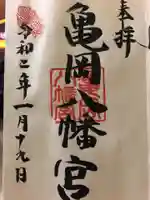 奉拝
亀岡八幡宮
令和二年一月十九日